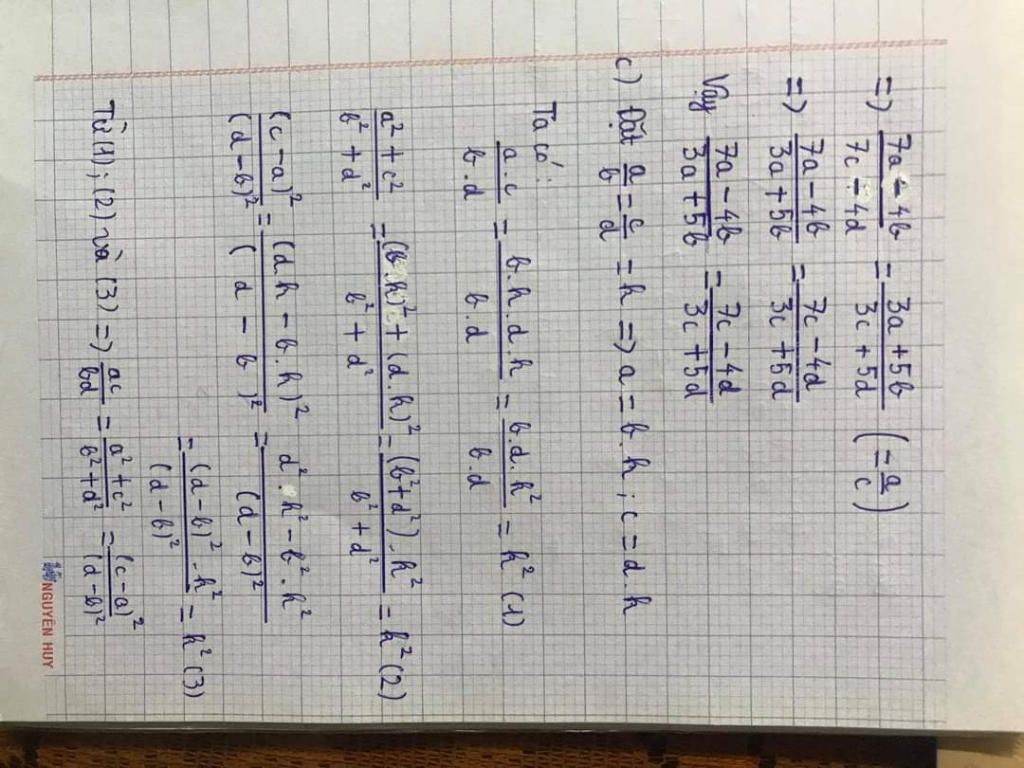 => (7a - 4b)/(7c - 4d) = (3a + 5b)/(3c + 5d) (= a/c)
=> (7a - 4b)/(3a + 5b) = (7c - 4d)/(3c + 5d)
Vậy (7a - 4b)/(3a + 5b) = (7c - 4d)/(3c + 5d)
c) Đặt a/b = c/d = k => a = b.k ; c = d.k
Ta có:
(a.c)/(b.d) = (b.k.d.k)/(b.d) = (b.d.k²)/(b.d) = k² (1)
(a² + c²)/(b² + d²) = ((b.k)² + (d.k)²)/(b² + d²) = ((b² + d²).k²)/(b² + d²) = k² (2)
(c - a)²/(d - b)² = (dk - b.k)²/(d - b)² = (d².k² - b².k²)/(d - b)²
= ((d - b)².k²)/(d - b)² = k² (3)
Từ (1) ; (2) và (3) => ac/bd = (a² + c²)/(b² + d²) = (c - a)²/(d - b)²
NGUYÊN HUY